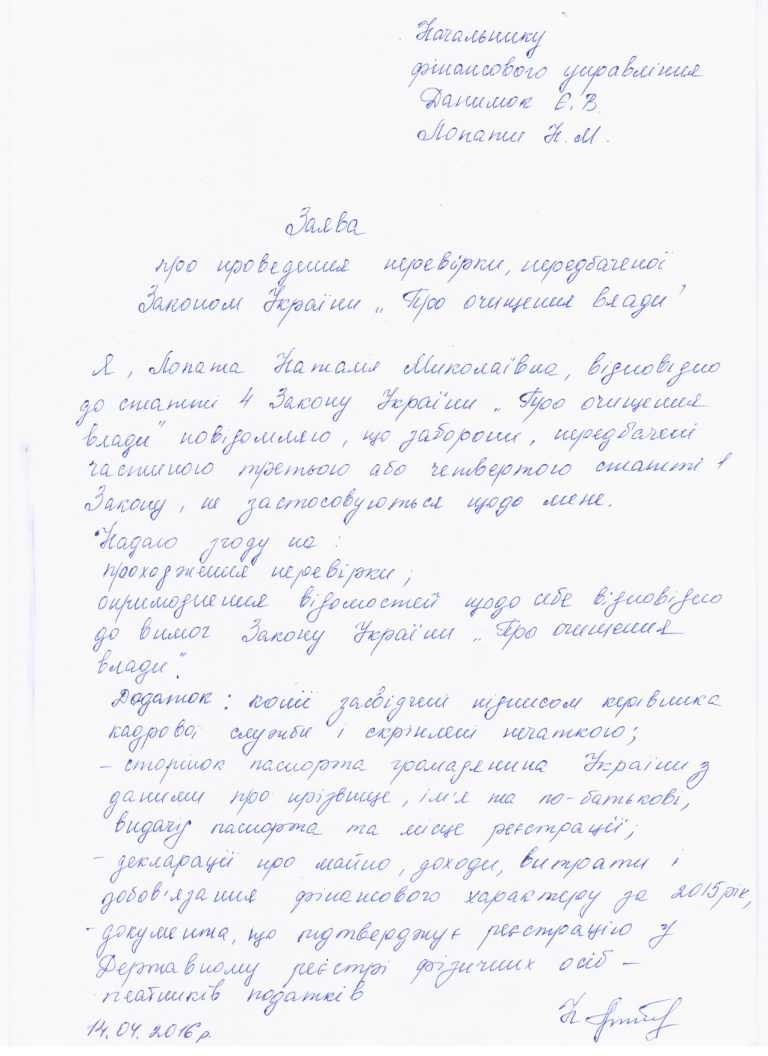 Начальнику
фінансового управління
Данилюк Є. В.
Лопати Н. М.
Заява
про проведення перевірки, передбаченої
Законом України „Про очищення влади"
Я, Лопата Наталія Миколаївна, відповідно
до статті 4 Закону України „Про очищення
влади" повідомляю, що заборони, передбачені
частиною третьою або четвертою статті 1
Закону, не застосовуються щодо мене.
Надаю згоду на:
проходження перевірки;
оприлюднення відомостей щодо себе відповідно
до вимог Закону України „Про очищення
влади".
Додаток: копії засвідчені підписом керівника
кадрової служби і скріплені печаткою;
– сторінок паспорта громадянина України з
даними про прізвище, ім'я та по-батькові,
видачу паспорта та місце реєстрації;
– декларації про майно, доходи, витрати і
зобов'язання фінансового характеру за 2015 рік,
- документа, що підтверджує реєстрацію у
Державному реєстрі фізичних осіб –
платників податків
14.04.2016 р.